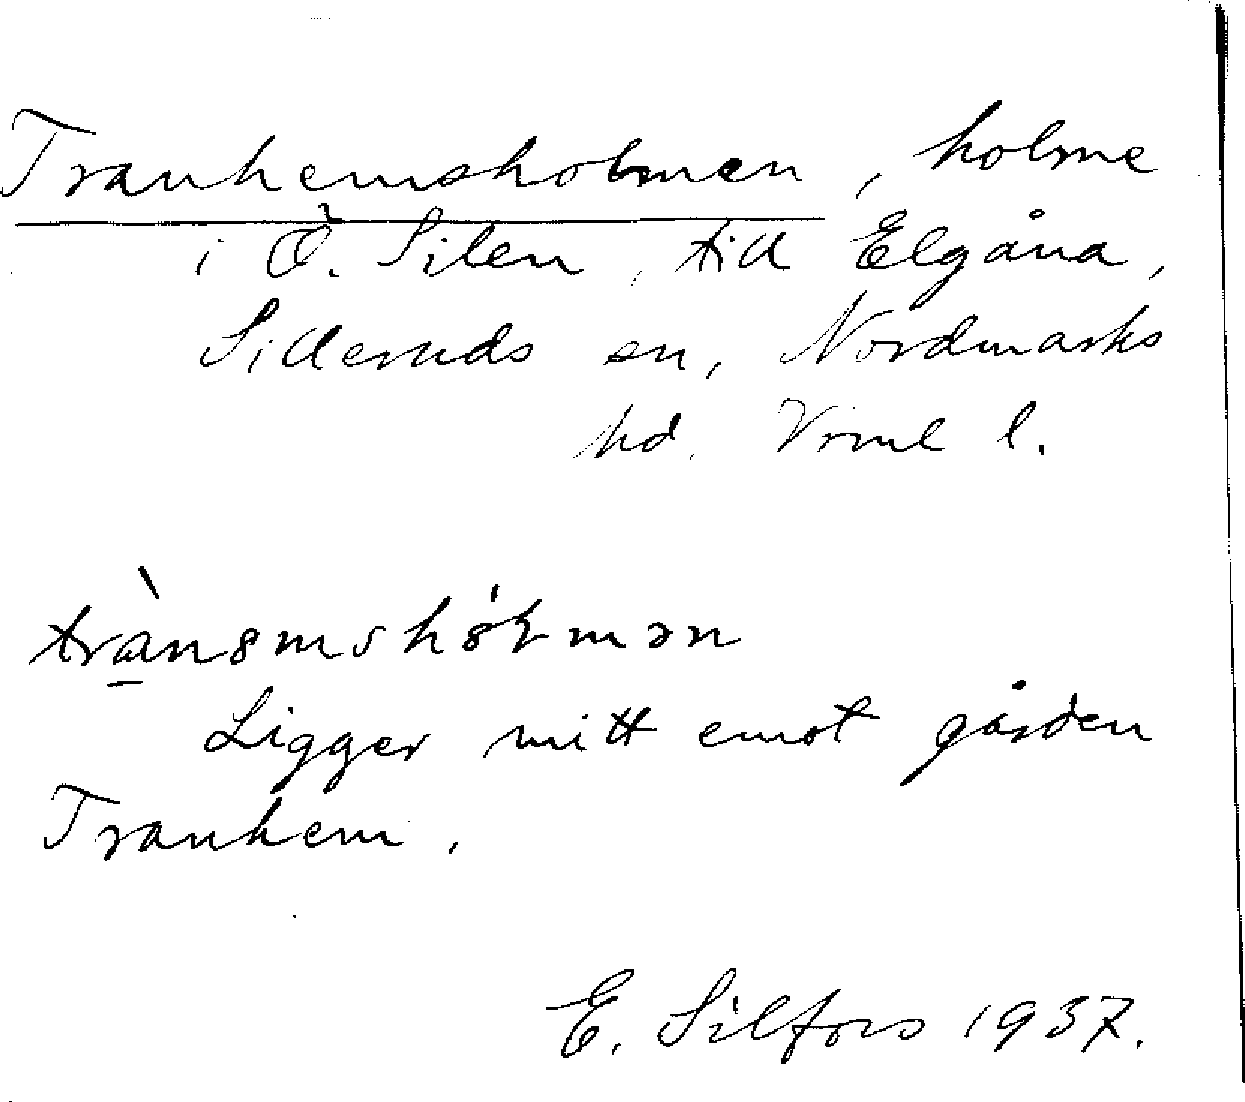 Tranhemsholmen, holme
i Ö. Silen, till Elgåna,
Silleruds sn, Nordmarks
hd. Vrml l.
Ligger mitt emot gården
Tranhem.
E. Silfors 1937.